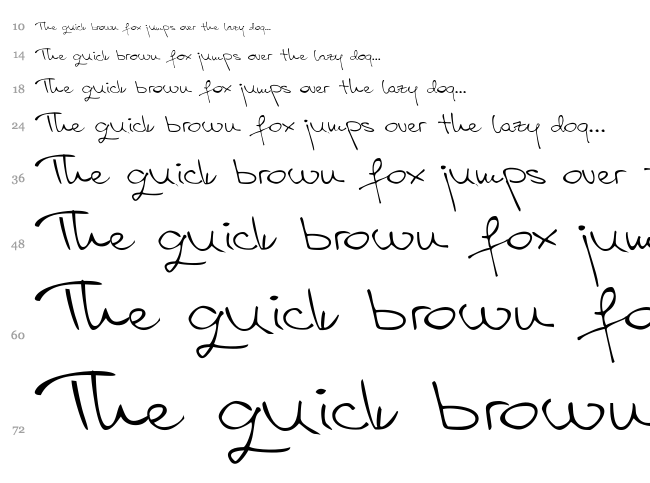 10 The quick brown fox jumps over the lazy dog...
14 The quick brown fox jumps over the lazy dog...
18 The quick brown fox jumps over the lazy dog...
24 The quick brown fox jumps over the lazy dog...
36 The quick brown fox jumps over
48 The quick brown fox jum
60 The quick brown fo
72 The quick brown